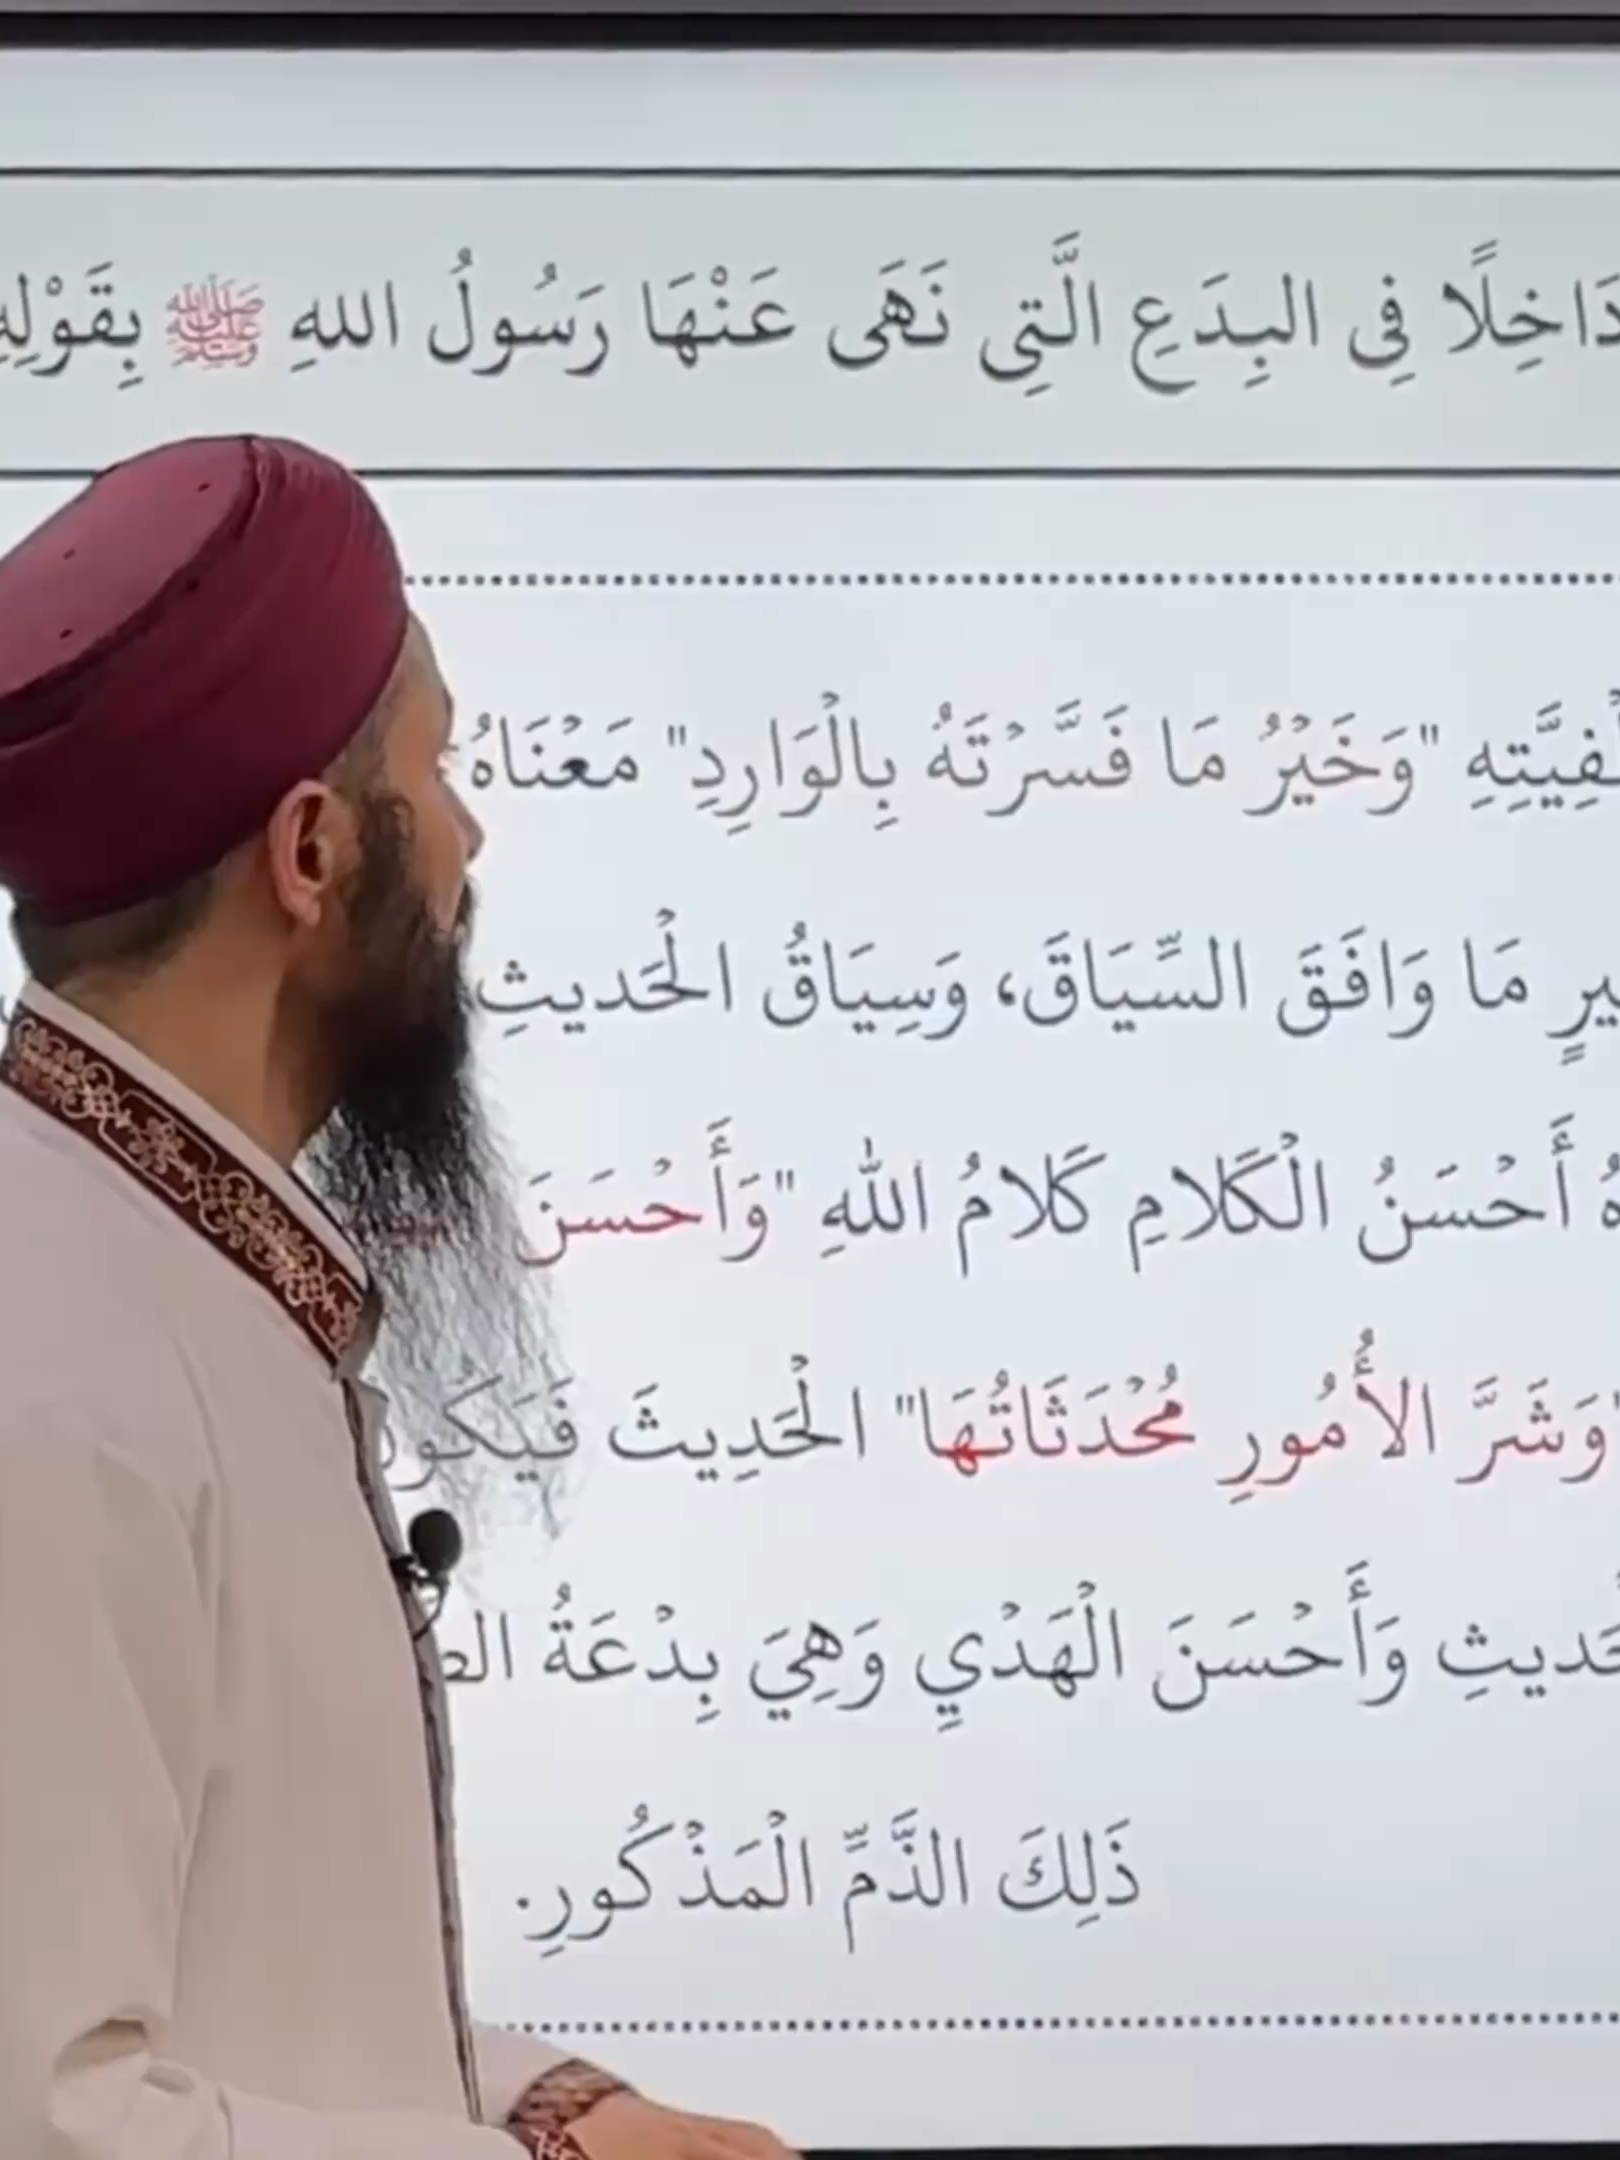 دَاخِلًا فِي البِدَعِ الَّتِي نَهَى عَنْهَا رَسُولُ اللهِ ﷺ بِقَوْلِهِ
"وَخَيْرُ مَا فَسَّرْتَهُ بِالْوَارِدِ" مَعْنَاهُ
مَا وَافَقَ السِّيَاقَ، وَسِيَاقُ الْحَديثِ
أَحْسَنُ الْكَلامِ كَلامُ اللهِ "وَأَحْسَنَ
"وَشَرَّ الأُمُورِ مُحْدَثَاتُهَا" الْحَدِيثَ
وَأَحْسَنَ الْهَدْيِ وَهِيَ بِدْعَةُ
ذَلِكَ الذَّمِّ الْمَذْكُورِ.